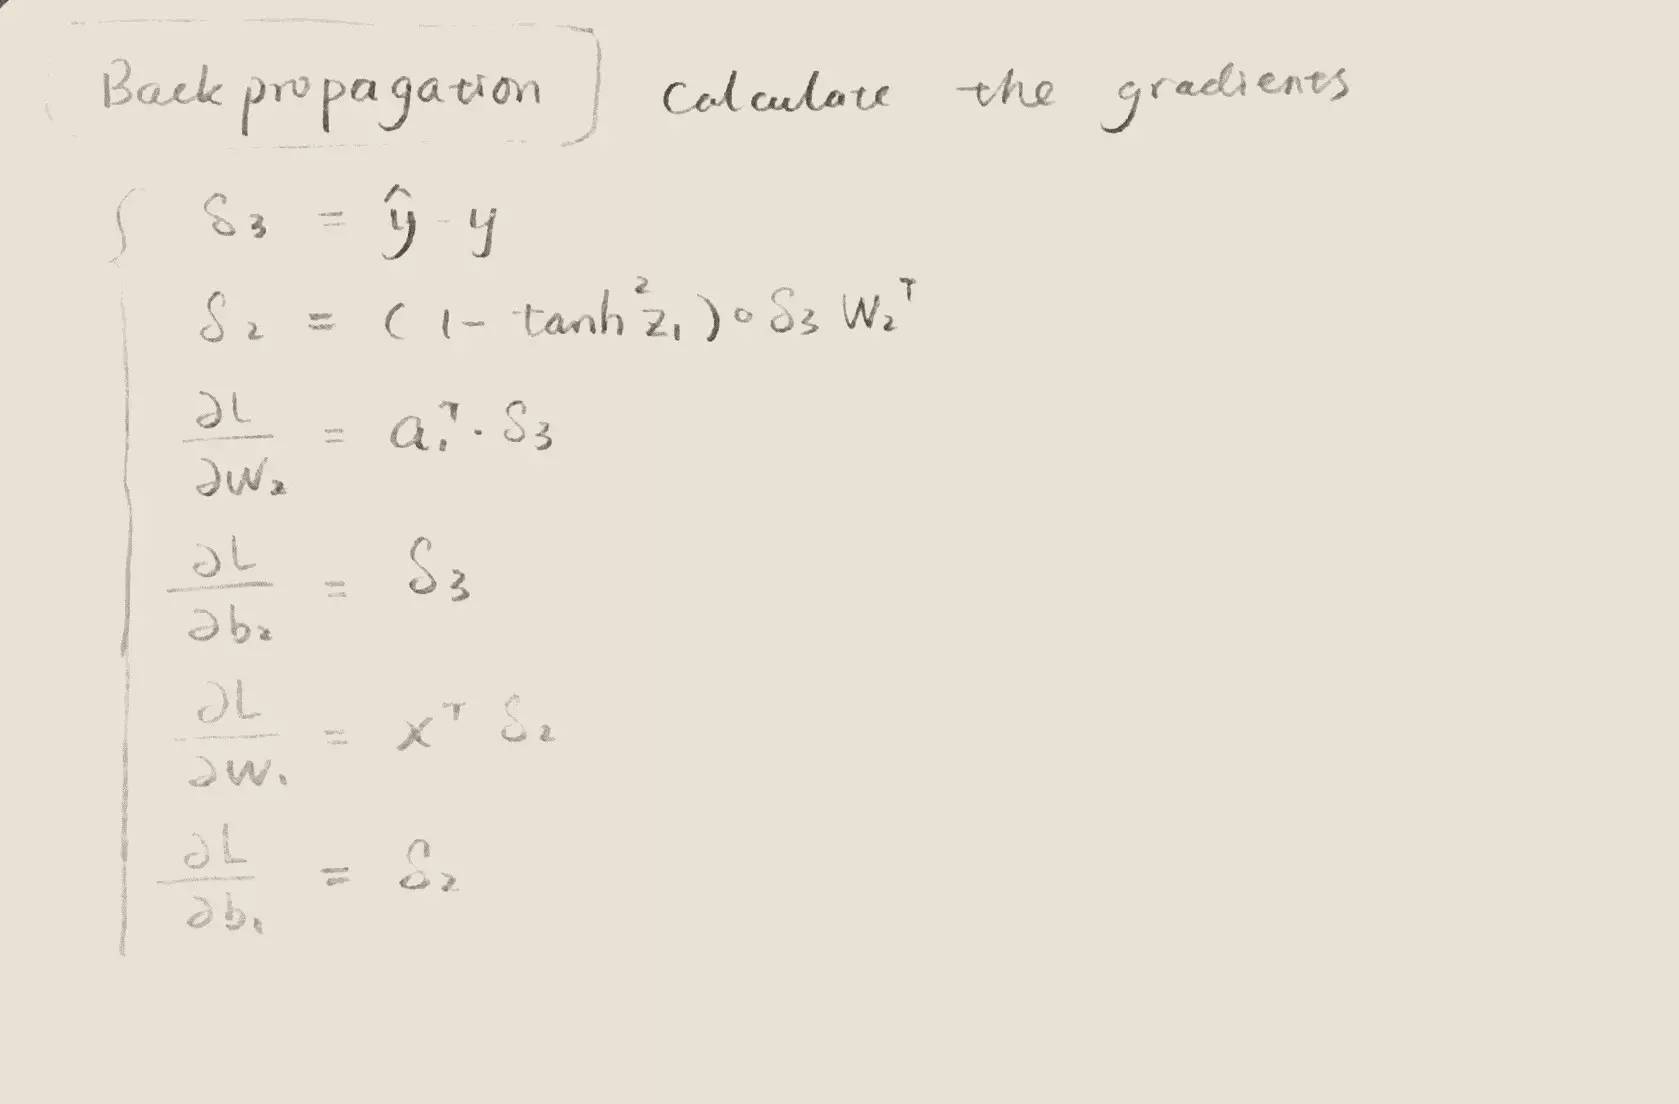 Backpropagation Calculate the gradients
δ₃ = ŷ - y
δ₂ = (1 - tanh²z₁)∘δ₃W₂ᵀ
∂L/∂W₂ = a₁ᵀ·δ₃
∂L/∂b₂ = δ₃
∂L/∂W₁ = xᵀ δ₂
∂L/∂b₁ = δ₂